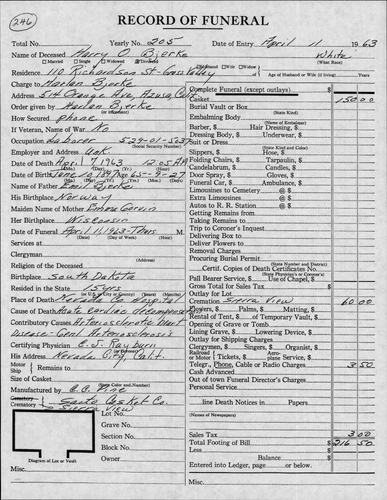 246
RECORD OF FUNERAL
Total No. Yearly No. 205 Date of Entry April 11 1963
Name of Deceased Harry O. Bjerke White
(What Race)
Residence 110 Richardson St - Grass Valley
Charge to Harlan Bjerke
Address 514 Orange Ave, Azusa, Calif
Order given by Harlan Bjerke
How Secured phone
If Veteran, of War No
Occupation laborer
(Social Security Number)
Employer and Address Unk.
Date of Death April 7, 1963 12:05 AM
Date of Birth
Name of Father Emil Bjerke
His Birthplace Norway
Maiden Name of Mother
Her Birthplace Wisconsin
Date of Funeral April 11, 1963 - Thurs M.
(Date) (Day of Week) (Hour)
Services at
Clergyman
Religion of the Deceased
Birthplace South Dakota
Resided in the State 15 yrs
Place of Death Nevada Co Hospital
Cause of Death Acute cardiac decompensation
Contributory Causes Arteriosclerotic Heart
Disease - Genl Arteriosclerosis
Certifying Physician C.J. Rayburn
His Address Nevada City Calif.
Motor
Ship Remains to
Size of Casket
Manufactured by
Cemetery
Crematory Sierra View
Lot No.
Grave No.
Section No.
Block No.
Owner
Diagram of Lot or Vault
Misc.
Single Widow Widowed Divorced
Age of Husband or Wife (if living) Years
Complete Funeral (except outlays) $
Casket 150.00
Burial Vault or Box
(State Kind)
Embalming Body
(Name of Embalmer)
Barber, $ Hair Dressing, $
Dressing Body, $ Underwear, $
Suit or Dress
(State Kind and Color)
Slippers, $ Hose, $
Folding Chairs, $ Tarpaulin, $
Candelabrum, $ Candles, $
Door Spray, $ Gloves, $
Funeral Car, $ Ambulance, $
Limousines to Cemetery @ $
Extra Limousines @ $
Autos to R. R. Station @ $
Getting Remains from
Taking Remains to
Trip to Coroner's Inquest
Delivering Box to
Deliver Flowers to
Removal Charges
Procuring Burial Permit
(State Number and District)
Certif. Copies of Death Certificates No.
(State Physician's or Coroner's)
Pall Bearer Service, $ Use of Chapel, $
Gross Total for Sales Tax $
Outlay for Lot
Cremation Sierra View 60 00
Flowers, $ Palms, $ Matting, $
Rental of Tent, $ of Temporary Vault, $
Opening of Grave or Tomb
Lining Grave, $ Lowering Device, $
Outlay for Shipping Charges
Clergyman, $ Singers, $ Organist, $
Railroad
or Motor Tickets, $ Aeroplane Service, $
Telegr., Phone, Cable or Radio Charges 3 50
Cash Advanced
Out of town Funeral Director's Charges
Personal Service
line Death Notices in Papers
(Names of Newspapers)
Sales Tax 3 00
Total Footing of Bill $ 216 50
Less $
Balance $
Entered into Ledger, page or below.
Misc.